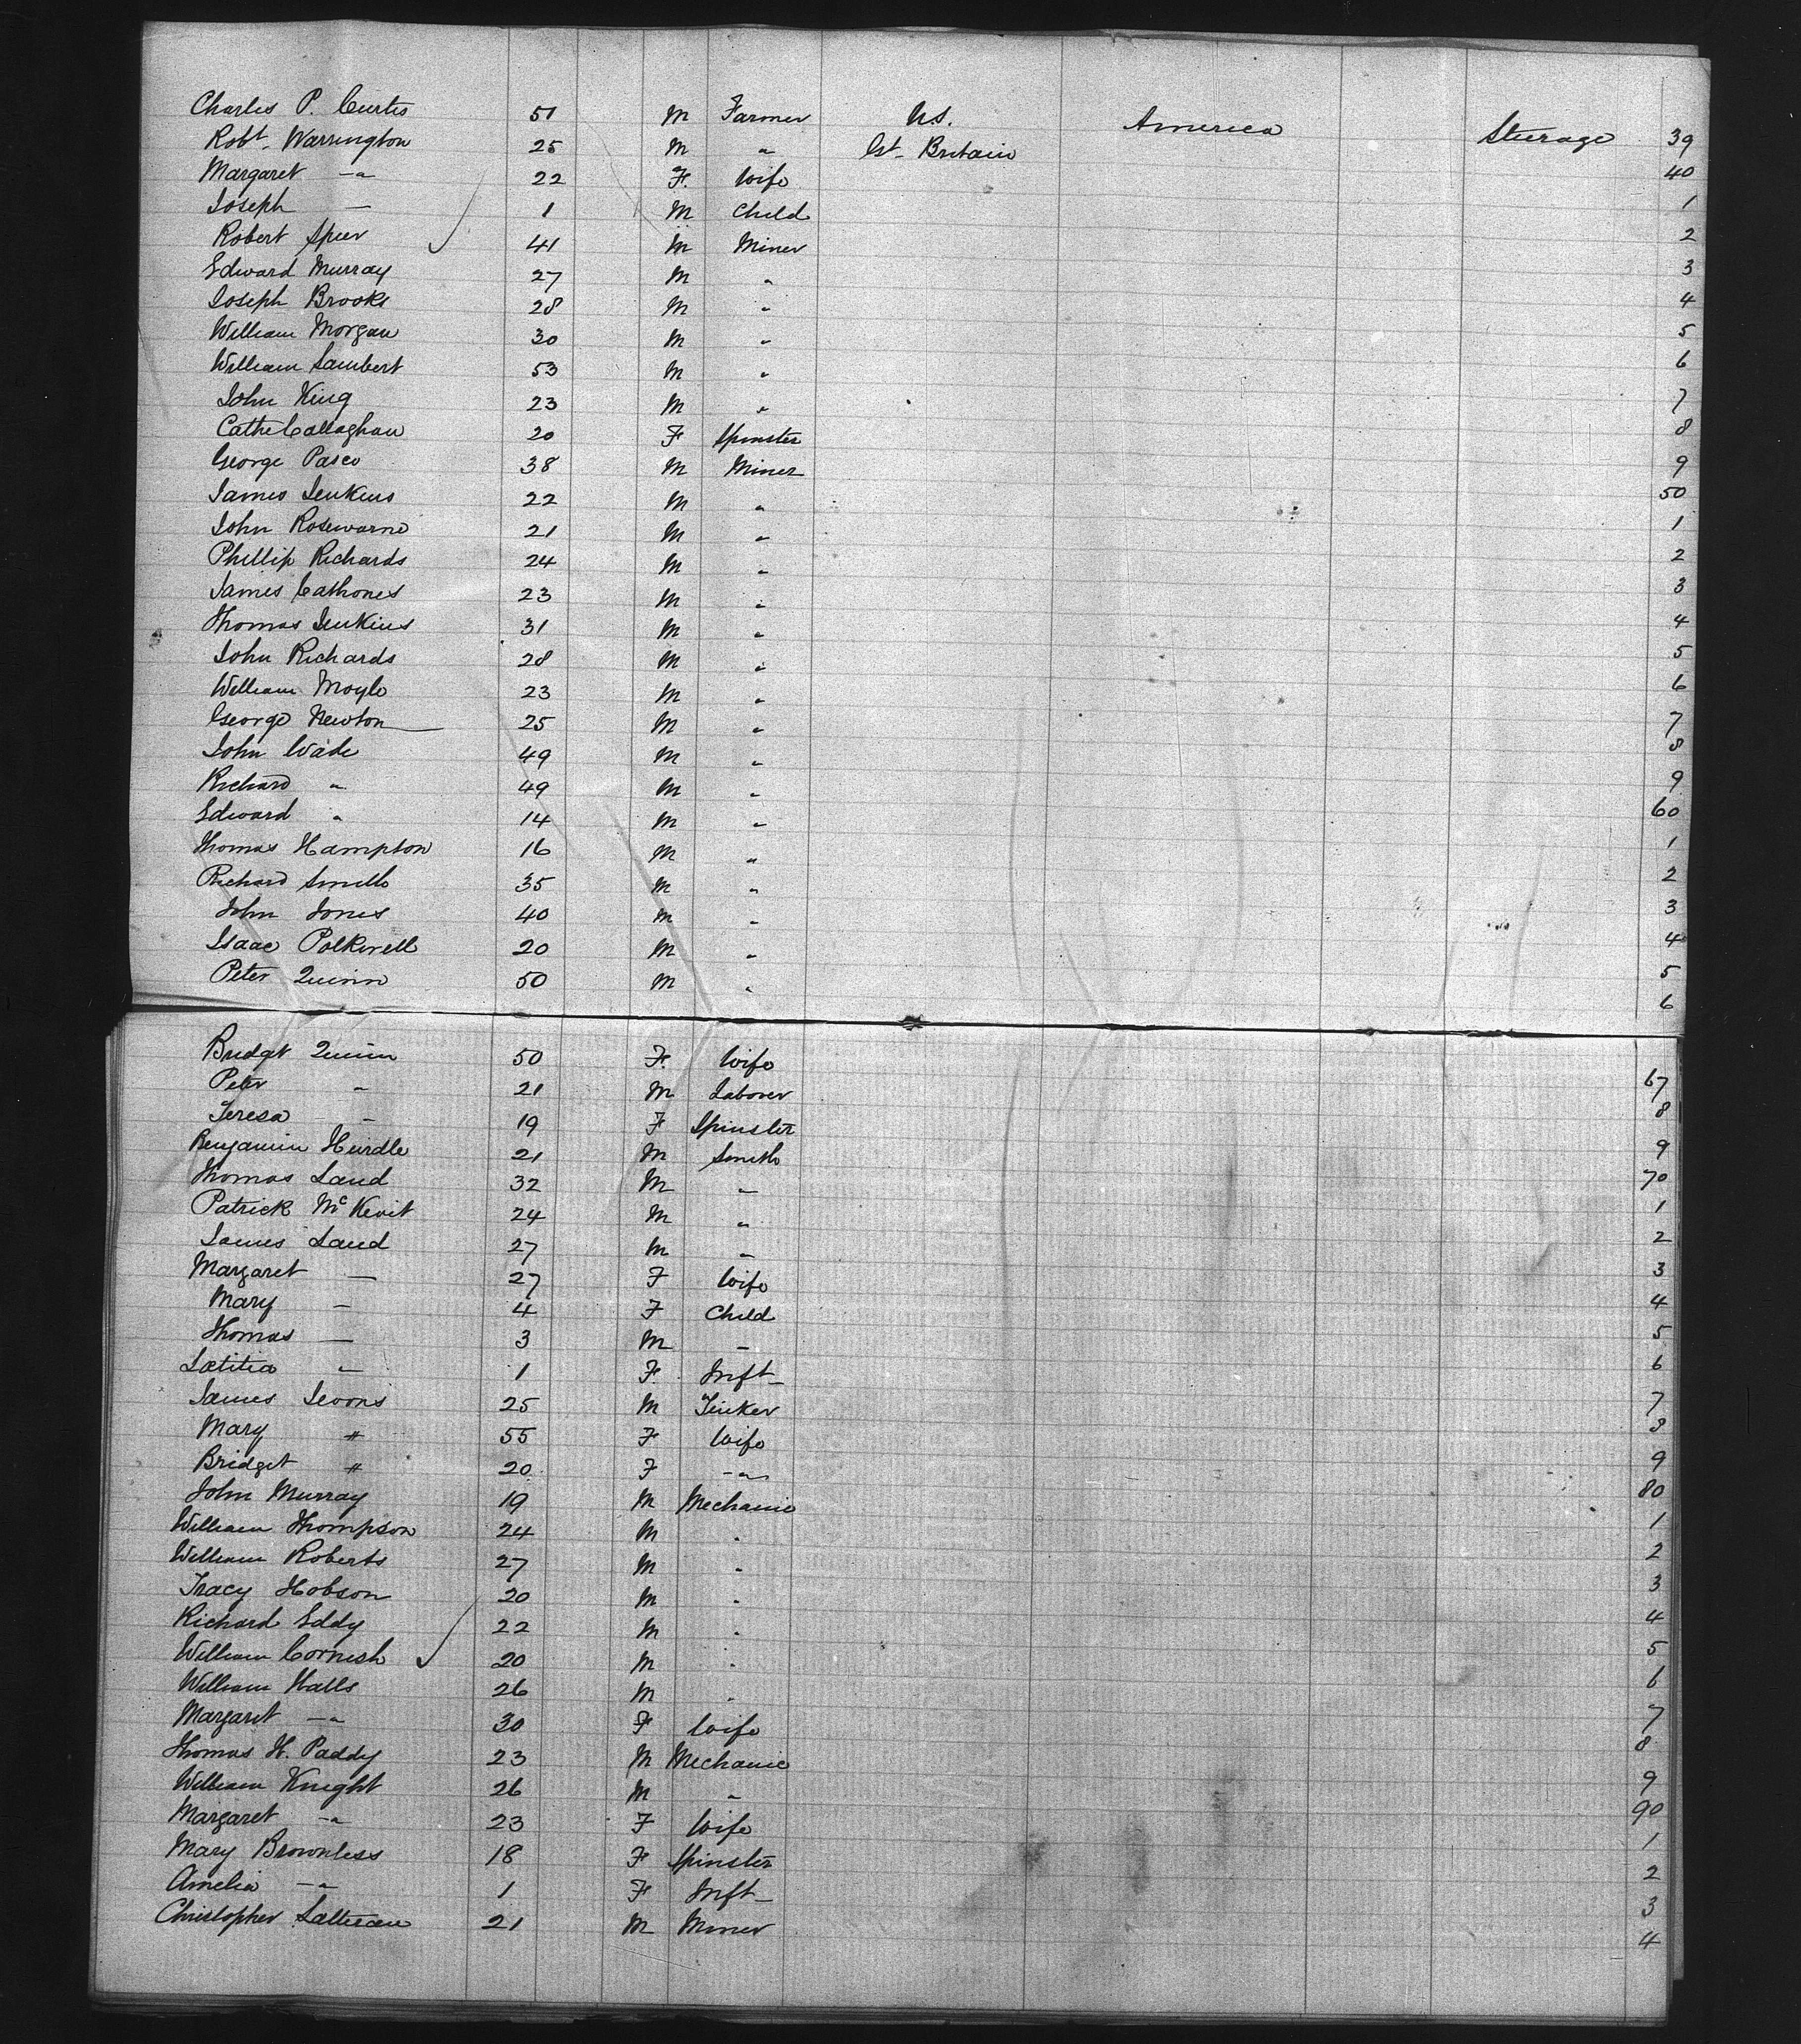 Charles P. Curtis 51 M Farmer U.S. America Steerage 39
Robt. Warrington 25 M " Gt. Britain 40
Margaret -"- 22 F. Wife 1
Joseph — 1 M Child 2
Robert Speer 41 M Miner 3
Edward Murray 27 M " 4
Joseph Brooks 28 M " 5
William Morgan 30 M " 6
William Lambert 53 M " 7
John King 23 M " 8
Cathe Callaghan 20 F Spinster 9
George Pasco 38 M Miner 50
James Jenkins 22 M " 1
John Rosewarne 21 M " 2
Phillip Richards 24 M " 3
James 23 M " 4
Thomas Jenkins 31 M " 5
John Richards 28 M " 6
William Moyle 23 M " 7
George Newton 25 M " 8
John Wade 49 M " 9
Richard " 49 M " 60
Edward " 14 M " 1
Thomas Hampton 16 M " 2
Richard Smith 35 M " 3
John Jones 40 M " 4
Isaac Polkwell 20 M " 5
Peter Quinn 50 M " 6
Bridget Quinn 50 F. Wife 67
Peter " 21 M Laborer 8
Teresa " 19 F Spinster 9
Benjamin Hurdle 21 M Smith 70
Thomas Land 32 M " 1
Patrick McKevit 24 M " 2
James Land 27 M " 3
Margaret — 27 F Wife 4
Mary — 4 F Child 5
Thomas — 3 M " 6
Lætitia " 1 F. Inft- 7
James 25 M Tinker 8
Mary " 55 F Wife 9
Bridget " 20 F -"- 80
John Murray 19 M Mechanic 1
William Thompson 24 M " 2
William Roberts 27 M " 3
Tracy Hobson 20 M " 4
Richard Eddy 22 M " 5
William Cornish 20 M " 6
William Halls 26 M " 7
Margaret -"- 30 F Wife 8
Thomas H. Paddy 23 M Mechanic 9
William Knight 26 M " 90
Margaret -"- 23 F Wife 1
Mary Brownless 18 F Spinster 2
Amelia -"- 1 F Inft- 3
Christopher 21 M Miner 4